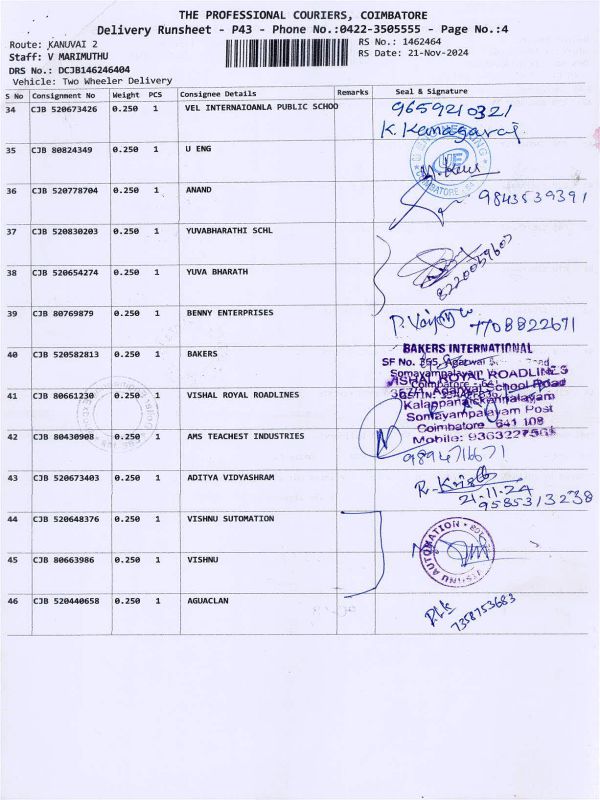 THE PROFESSIONAL COURIERS, COIMBATORE
Delivery Runsheet - P43 - Phone No.:0422-3505555 - Page No.:4
Route: KANUVAI 2
RS No.: 1462464
Staff: V MARIMUTHU
RS Date: 21-Nov-2024
DRS No.: DCJB146246404
Vehicle: Two Wheeler Delivery
S No Consignment No Weight PCS Consignee Details Remarks Seal & Signature
34 CJB 520673426 0.250 1 VEL INTERNAIOANLA PUBLIC SCHOO
9659210321
K. Kanagaraj
35 CJB 80824349 0.250 1 U ENG
UE
COIMBATORE
36 CJB 520778704 0.250 1 ANAND
9843539391
37 CJB 520830203 0.250 1 YUVABHARATHI SCHL
38 CJB 520654274 0.250 1 YUVA BHARATH
8220059603
39 CJB 80769879 0.250 1 BENNY ENTERPRISES
7708822671
40 CJB 520582813 0.250 1 BAKERS
BAKERS INTERNATIONAL
SF No. 355, Agarwal School Road,
Somayampalayam
Coimbatore - 641
41 CJB 80661230 0.250 1 VISHAL ROYAL ROADLINES
VISHAL ROYAL ROADLINES
Agarwal School Road
Kalappanaickenpalayam
Somayampalayam Post
Coimbatore 641 108
Mobile: 9363227561
42 CJB 80430908 0.250 1 AMS TEACHEST INDUSTRIES
9894716671
43 CJB 520673403 0.250 1 ADITYA VIDYASHRAM
21.11.24
9585313238
44 CJB 520648376 0.250 1 VISHNU SUTOMATION
VISHNU AUTOMATION
45 CJB 80663986 0.250 1 VISHNU
46 CJB 520440658 0.250 1 AGUACLAN
7358753683